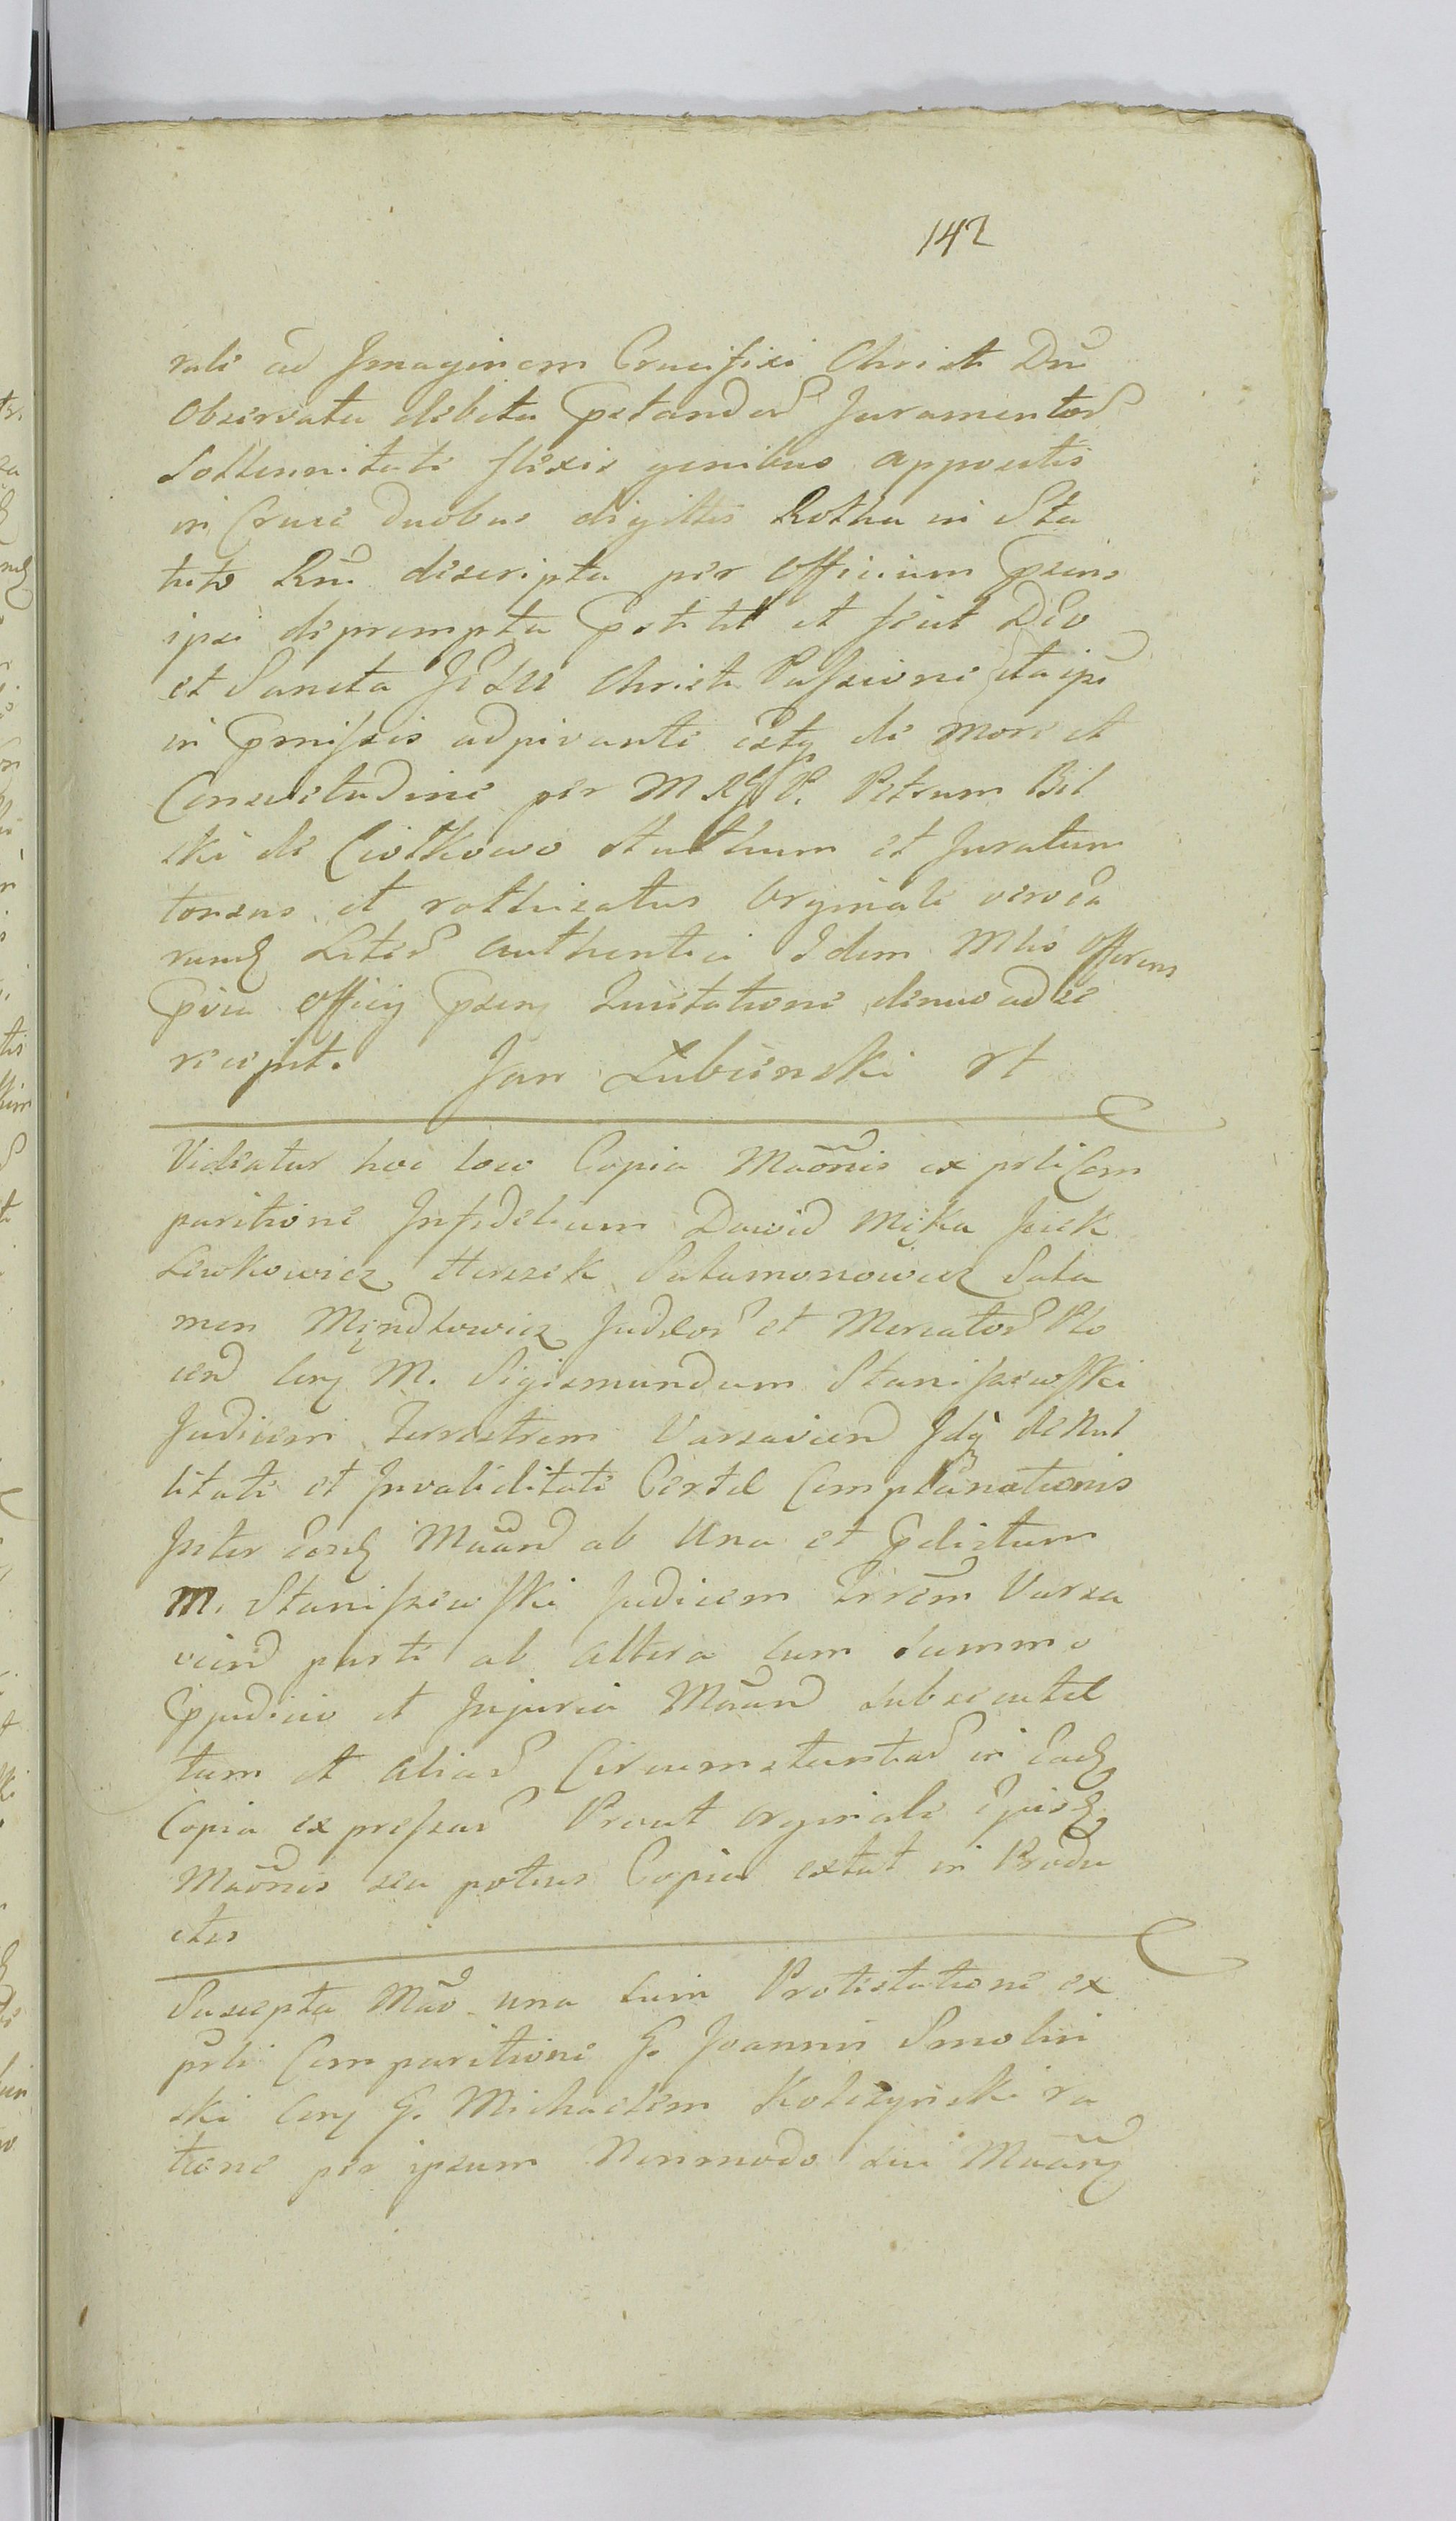 142
rali ad Imaginem Crucifixi Christi Dni
Observata debita pstandor Juramentor
Sollennitate flexis genibus appositis
in Cruce duobus digittis Rotha in Sta
tuto Rni descripta per Officium psens
ipsi deprompta pstitit et fecit Deo
et Sancta JESU Christi Passione ita ipi
in pmissis adjuvante estq de more et
Consvetudine per M P. Petrum Bil
ski de Ciółkowo Stultum et Juratum
tonsus et rothisatus Orginali vero ea
rund Liter authentici Idem Mlis Offerens
pvia Officy psens Quietatione denuo ad se
recepit. Jan Łubienski rt
Videatur hoc loco Copia Maonis ex psli Com
paritione Infidelium Dawid Męka Jcek
Lewkowicz Herszek Salamonowicz Sala
mon Męndlowicz Judæor et Mercator Plo
cen Cony M. Sigismundum Staniszewski
Judicem Terrestrem Varsavien Idq de Nul
litate et Invaliditate Certæ Complanationis
Inter Eosd Maan ab Una et pdictum
M. Staniszewski Judicem Trrem Varsa
vien parte ab altera cum summo
pjudicio et Injuria Maan subsecutæ
tum et aliar Circumstantiar in Ead
Copia expressar Prout Orginale Ejusd
Maonis seu potius Copia extat in Produ
ctis
Suscepta Mao una cum Protestatione ex
psli Comparitione G. Joannis Smolin
ski Cony G. Michaelem Kolczyński ra
tione per ipsum Nonmodo sui Maan